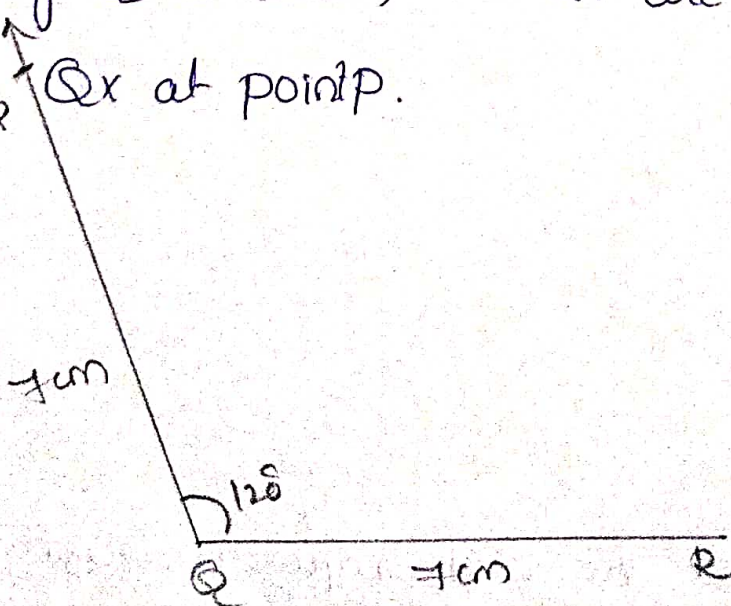 Qx at point P.
P
7 cm
120°
Q 7 cm R